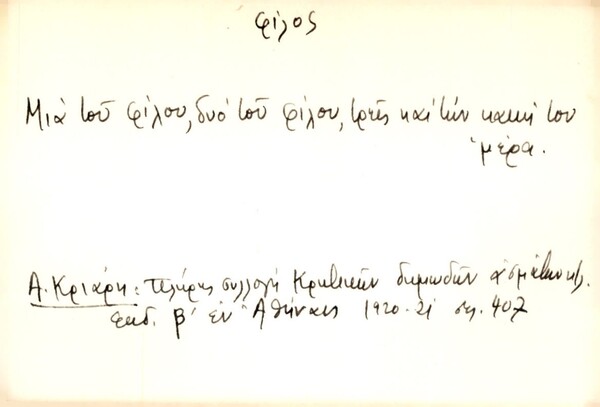 φίλος
Μιά τοῦ φίλου, δυό τοῦ φίλου, τρεῖς καί τήν κακή του
μέρα.
Α. Κριάρη: Πλήρης συλλογή Κρητικῶν δημωδῶν ἀσμάτων κλ.
ἐκδ. β' ἐν Ἀθήναις 1920-21 σελ. 407